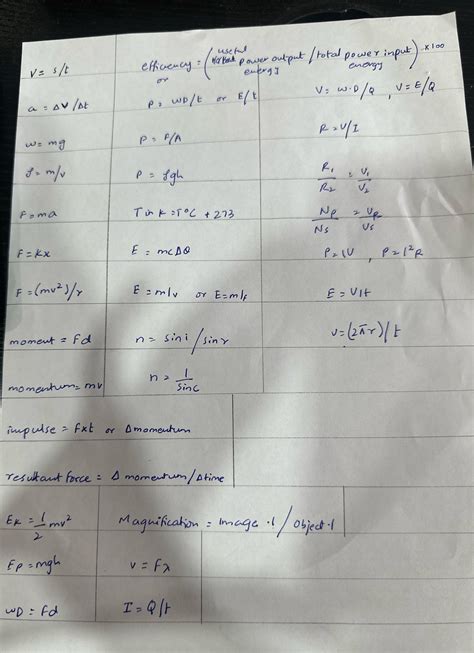 v = s/t
efficiency = (useful power output / total power input) x 100
energy energy
or
a = ΔV/Δt
P = WD/t or E/t
V = W.D/Q, V = E/Q
w = mg
P = F/A
R = V/I
ρ = m/v
P = ρgh
R1/R2 = V1/V2
F = ma
T in K = T°C + 273
Np/Ns = Vp/Vs
F = kx
E = mcΔθ
P = IV, P = I²R
F = (mv²)/r
E = mlv or E = mlf
E = VIt
moment = Fd
n = sin i / sin r
v = (2πr)/t
momentum = mv
n = 1/sin c
impulse = Fxt or Δmomentum
resultant force = Δmomentum/Δtime
Ek = 1/2 mv²
Magnification = Image.l / Object.l
Ep = mgh
v = Fλ
WD = Fd
I = Q/t